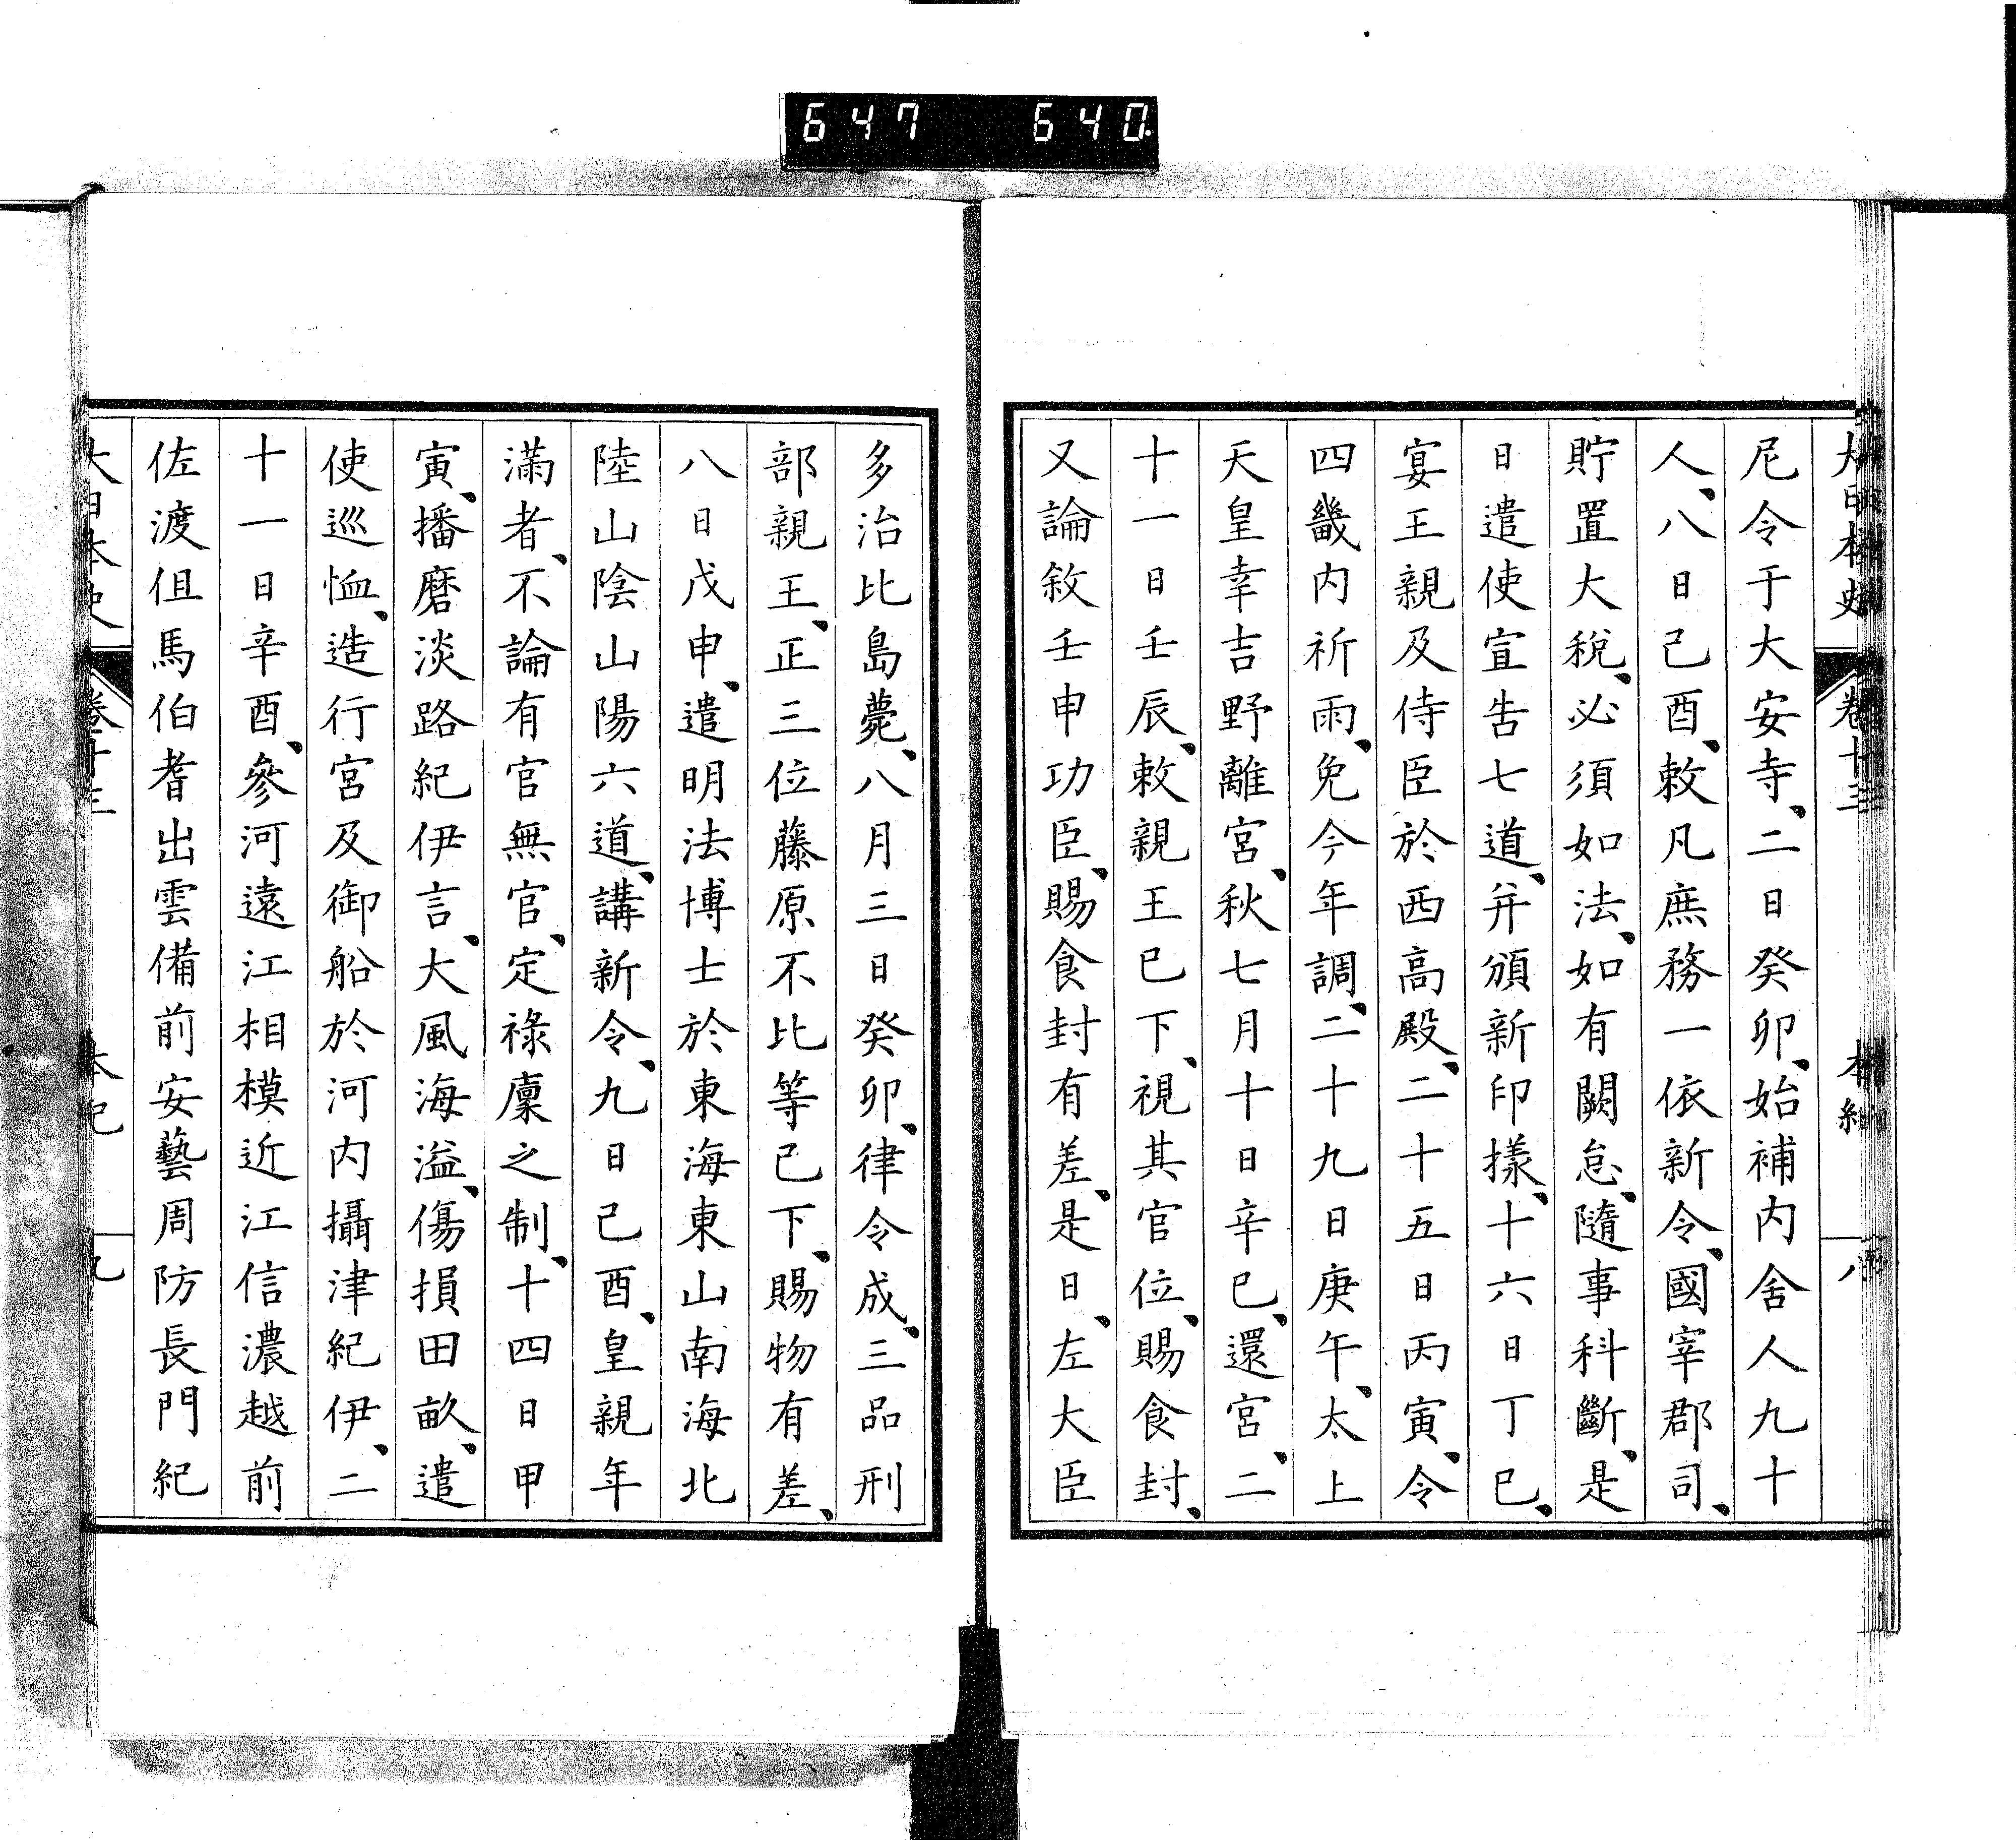 647 640
大日本史 卷十三 本紀 八
尼令于大安寺、二日癸卯、始補內舍人九十
人、八日己酉、敕凡庶務一依新令、國宰郡司、
貯置大稅、必須如法、如有闕怠、隨事科斷、是
日遣使宣告七道、幷頒新印樣、十六日丁巳、
宴王親及侍臣於西高殿、二十五日丙寅、令
四畿內祈雨、免今年調、二十九日庚午、太上
天皇幸吉野離宮、秋七月十日辛巳、還宮、二
十一日壬辰、敕親王已下、視其官位、賜食封、
又論敘壬申功臣、賜食封有差、是日、左大臣
多治比島薨、八月三日癸卯、律令成、三品刑
部親王、正三位藤原不比等已下、賜物有差、
八日戊申、遣明法博士於東海東山南海北
陸山陰山陽六道、講新令、九日己酉、皇親年
滿者、不論有官無官、定祿廩之制、十四日甲
寅、播磨淡路紀伊言、大風海溢、傷損田畝、遣
使巡恤、造行宮及御船於河內攝津紀伊、二
十一日辛酉、參河遠江相模近江信濃越前
佐渡但馬伯耆出雲備前安藝周防長門紀
大日本史 卷十三 本紀 九